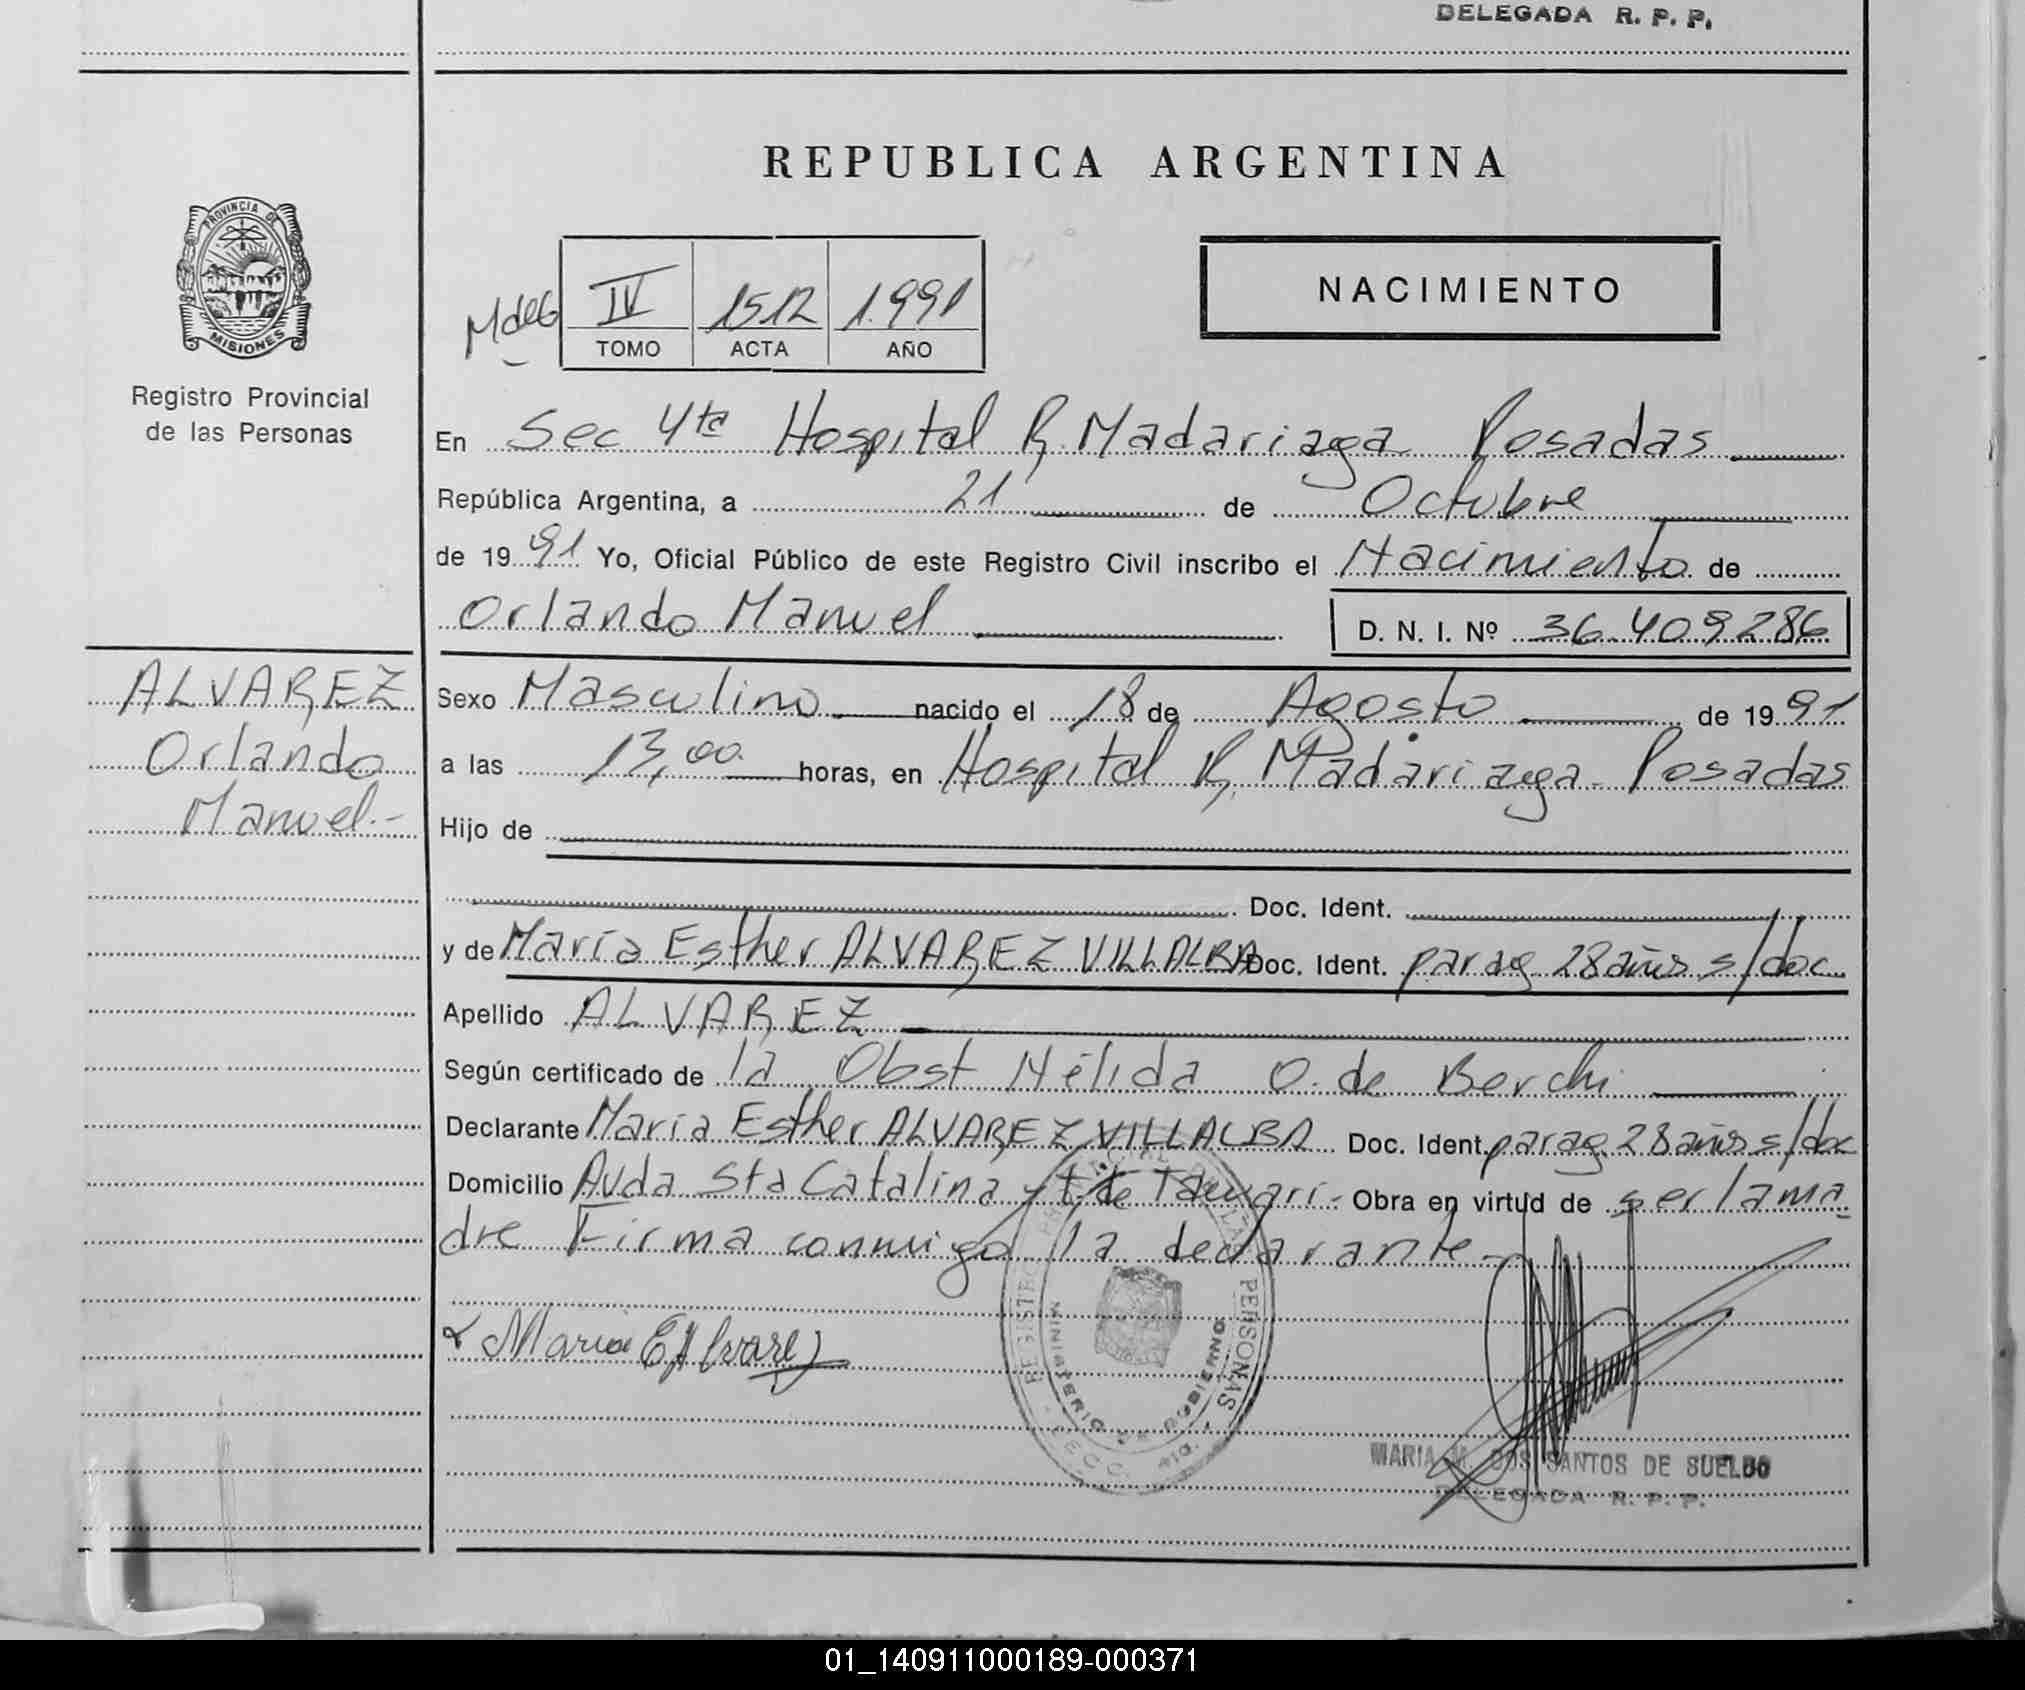 DELEGADA R. P. P.
REPUBLICA ARGENTINA
PROVINCIA DE
MISIONES
Registro Provincial
de las Personas
IV 1512 1.991
TOMO ACTA AÑO
NACIMIENTO
En Sec 4ta Hospital R. Madariaga Posadas
República Argentina, a 21 de Octubre
de 1991 Yo, Oficial Público de este Registro Civil inscribo el Nacimiento de
Orlando Manuel D. N. I. Nº 36.409.286
ALVAREZ
Orlando
Manuel.-
Sexo Masculino nacido el 18 de Agosto de 1991
a las 13,00 horas, en Hospital R. Madariaga - Posadas
Hijo de
Doc. Ident.
y de María Esther ALVAREZ VILLALBA Doc. Ident. parag 28 años s/doc
Apellido ALVAREZ
Según certificado de la Obst Nélida O. de Berchi
Declarante María Esther ALVAREZ VILLALBA Doc. Ident. parag. 28 años s/doc
Domicilio Avda Sta Catalina y Obra en virtud de ser la ma
dre Firma conmigo la declarante-
Maria E Alvarez
REGISTRO PROVINCIAL DE LAS PERSONAS
MINISTERIO DE GOBIERNO
MARIA M. DOS SANTOS DE SUELDO
DELEGADA R. P. P.
01_140911000189-000371